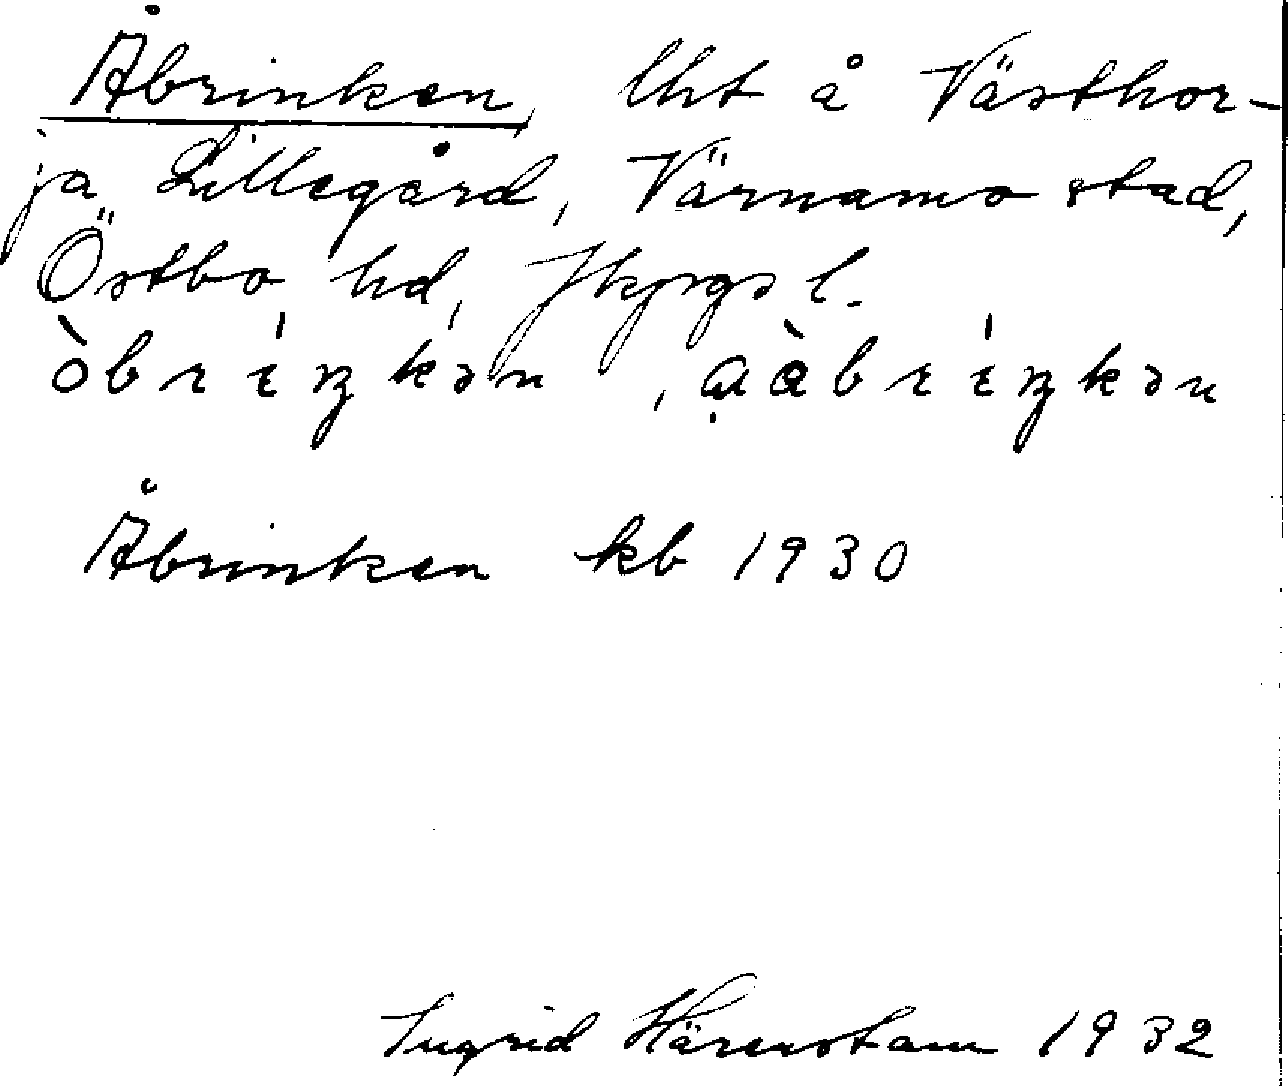 Åbrinken, lht å Västhor-
ja Lillegård, Värnamo stad,
Östbo hd, Jkpgs l.
òbríŋkən, ɑ̣àbríŋkən
Åbrinken kb 1930
Ingrid Härenstam 1932